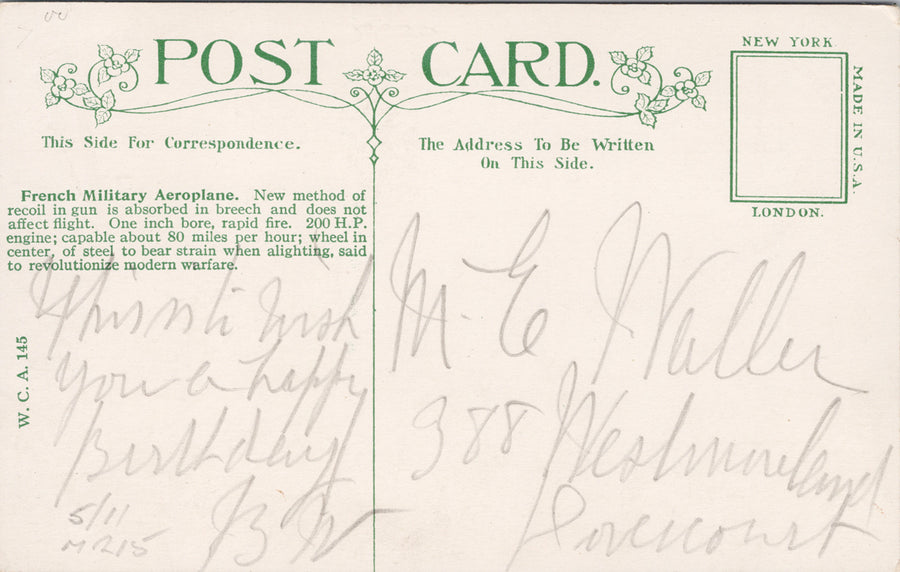 POST CARD.
This Side For Correspondence.
French Military Aeroplane. New method of
recoil in gun is absorbed in breech and does not
affect flight. One inch bore, rapid fire. 200 H.P.
engine; capable about 80 miles per hour; wheel in
center, of steel to bear strain when alighting, said
to revolutionize modern warfare.
W. C. A. 145
wish
you a happy
Birthday
B W
5/11
The Address To Be Written
On This Side.
NEW YORK
MADE IN U.S.A.
LONDON.
M. E Waller
388 Westmoreland
Dovercourt